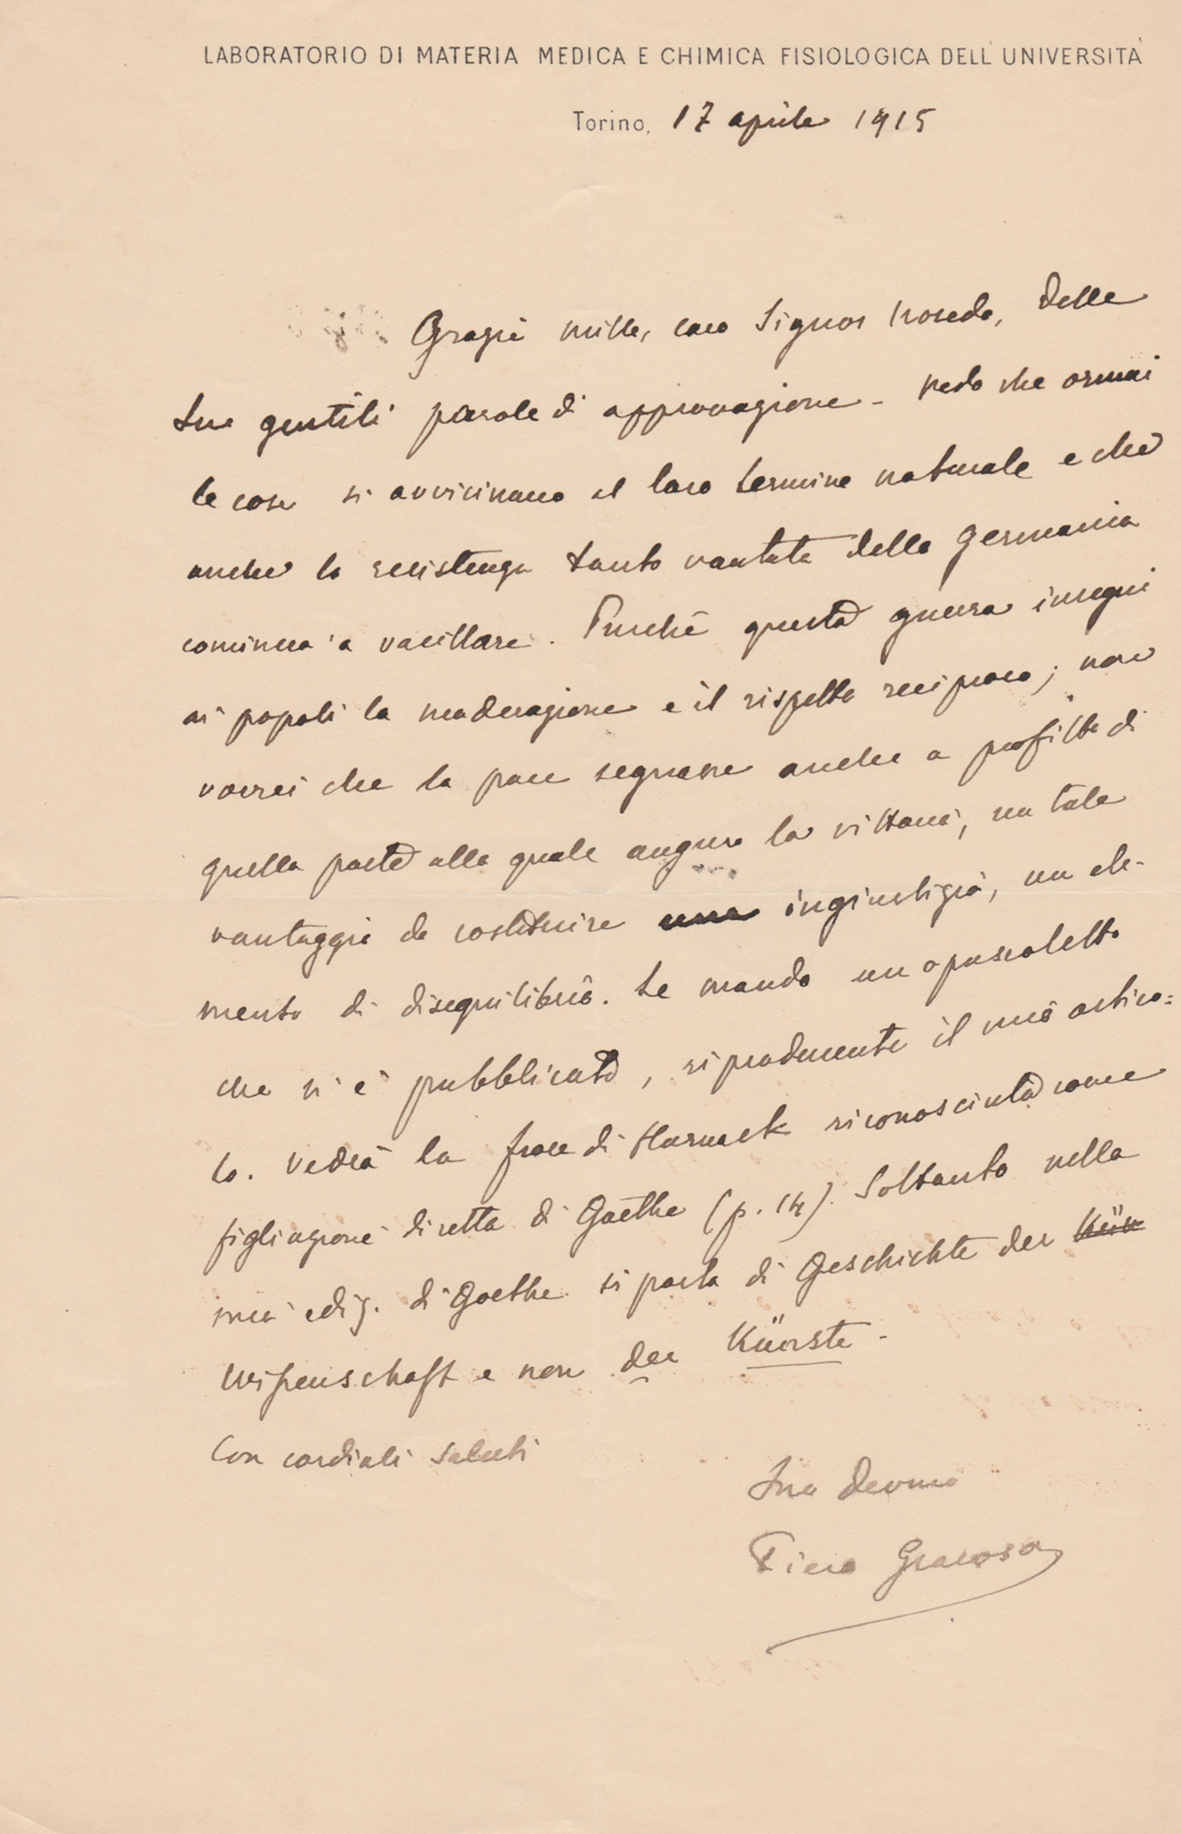 LABORATORIO DI MATERIA MEDICA E CHIMICA FISIOLOGICA DELL'UNIVERSITÀ
Torino, 17 aprile 1915
Grazie mille, caro Signor, delle
Sue gentili parole di approvazione - Vedo che ormai
le cose si avvicinano al loro termine naturale e che
anche la resistenza tanto vantata della Germania
comincia a vacillare. Purché questa guerra insegni
ai popoli la moderazione e il rispetto reciproco; non
vorrei che la pace segnasse anche a profitto di
quella parte alla quale auguro la vittoria, un tale
vantaggio da costituire una ingiustizia, un ele-
mento di disequilibrio. Le mando un opuscoletto
che si è pubblicato, riproducente il mio artico=
lo. Vedrà la frase di Harnack riconosciuta come
figliazione diretta di Goethe (p. 14). Soltanto nella
mia ediz. di Goethe si parla di Geschichte der Kün
Wissenschaft e non der Künste -
Con cordiali saluti
Suo Devmo
Piero Giacosa